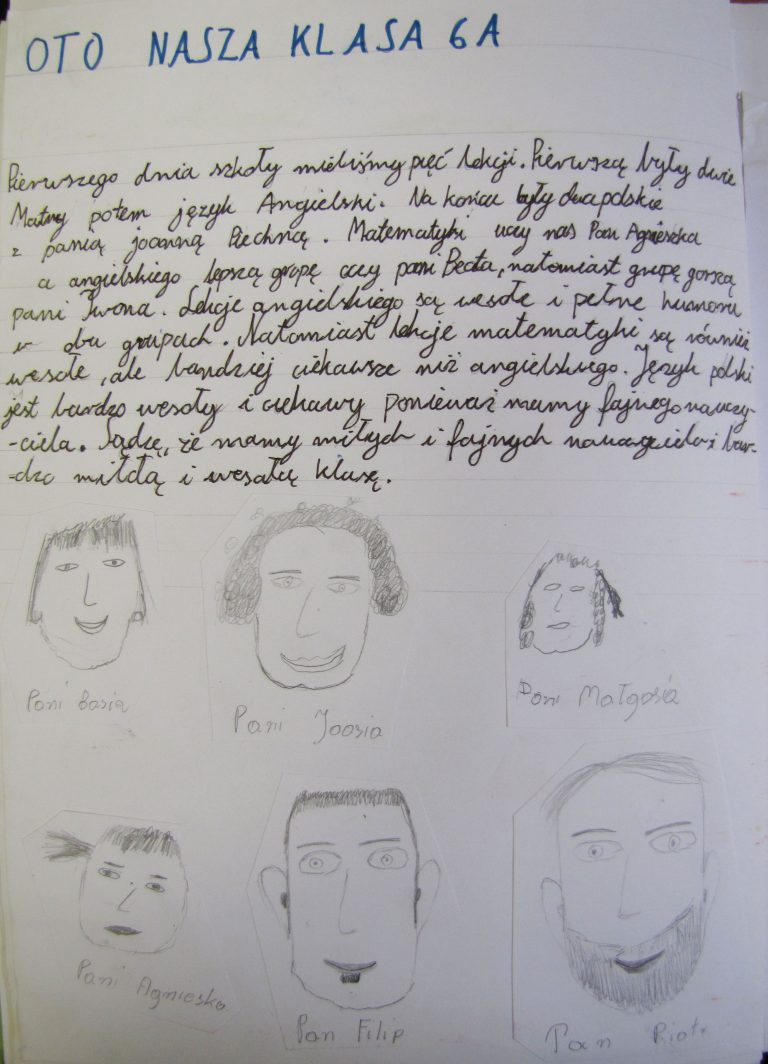 OTO NASZA KLASA 6A
Pierwszego dnia szkoły mieliśmy pięć lekcji. Pierwszą były dwie
Matmy potem język Angielski. Na końcu były dwa polskie
z panią joanną Piechną. Matematyki uczy nas Pani Agnieszka
a angielskiego lepszą grupę uczy pani Beata, natomiast grupę gorszą
pani Iwona. Lekcje angielskiego są wesołe i pełne humoru
w obu grupach. Natomiast lekcje matematyki są również
wesołe, ale bardziej ciekawsze niż angielskiego. Język polski
jest bardzo wesoły i ciekawy ponieważ mamy fajnego nauczy-
-ciela. Sądzę, że mamy miłych i fajnych nauczycieli i bar-
-dzo miłą i wesołą klasę.
Pani Basia
Pani Joasia
Pani Małgosia
Pani Agnieszka
Pan Filip
Pan Piotr